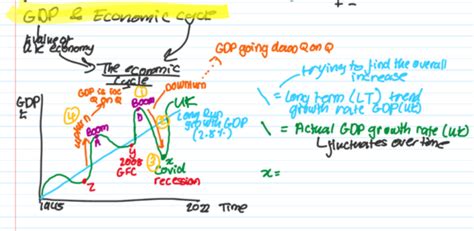 GDP & Economic cycle
£ value of
UK economy
The economic
cycle
GDP going down Q on Q
Downturn
GDP is inc
Q on Q
trying to find the overall
increase
\ = Long term (LT) trend
growth rate GDP (UK)
\ = Actual GDP growth rate (UK)
↳ fluctuates over time
x =
GDP
£
④
upturn
Boom
A
①
Boom
B
②
UK
Long Run
growth GDP
(2.5%)
z
y
2008
GFC
③
x
Covid
recession
1945
2022
Time